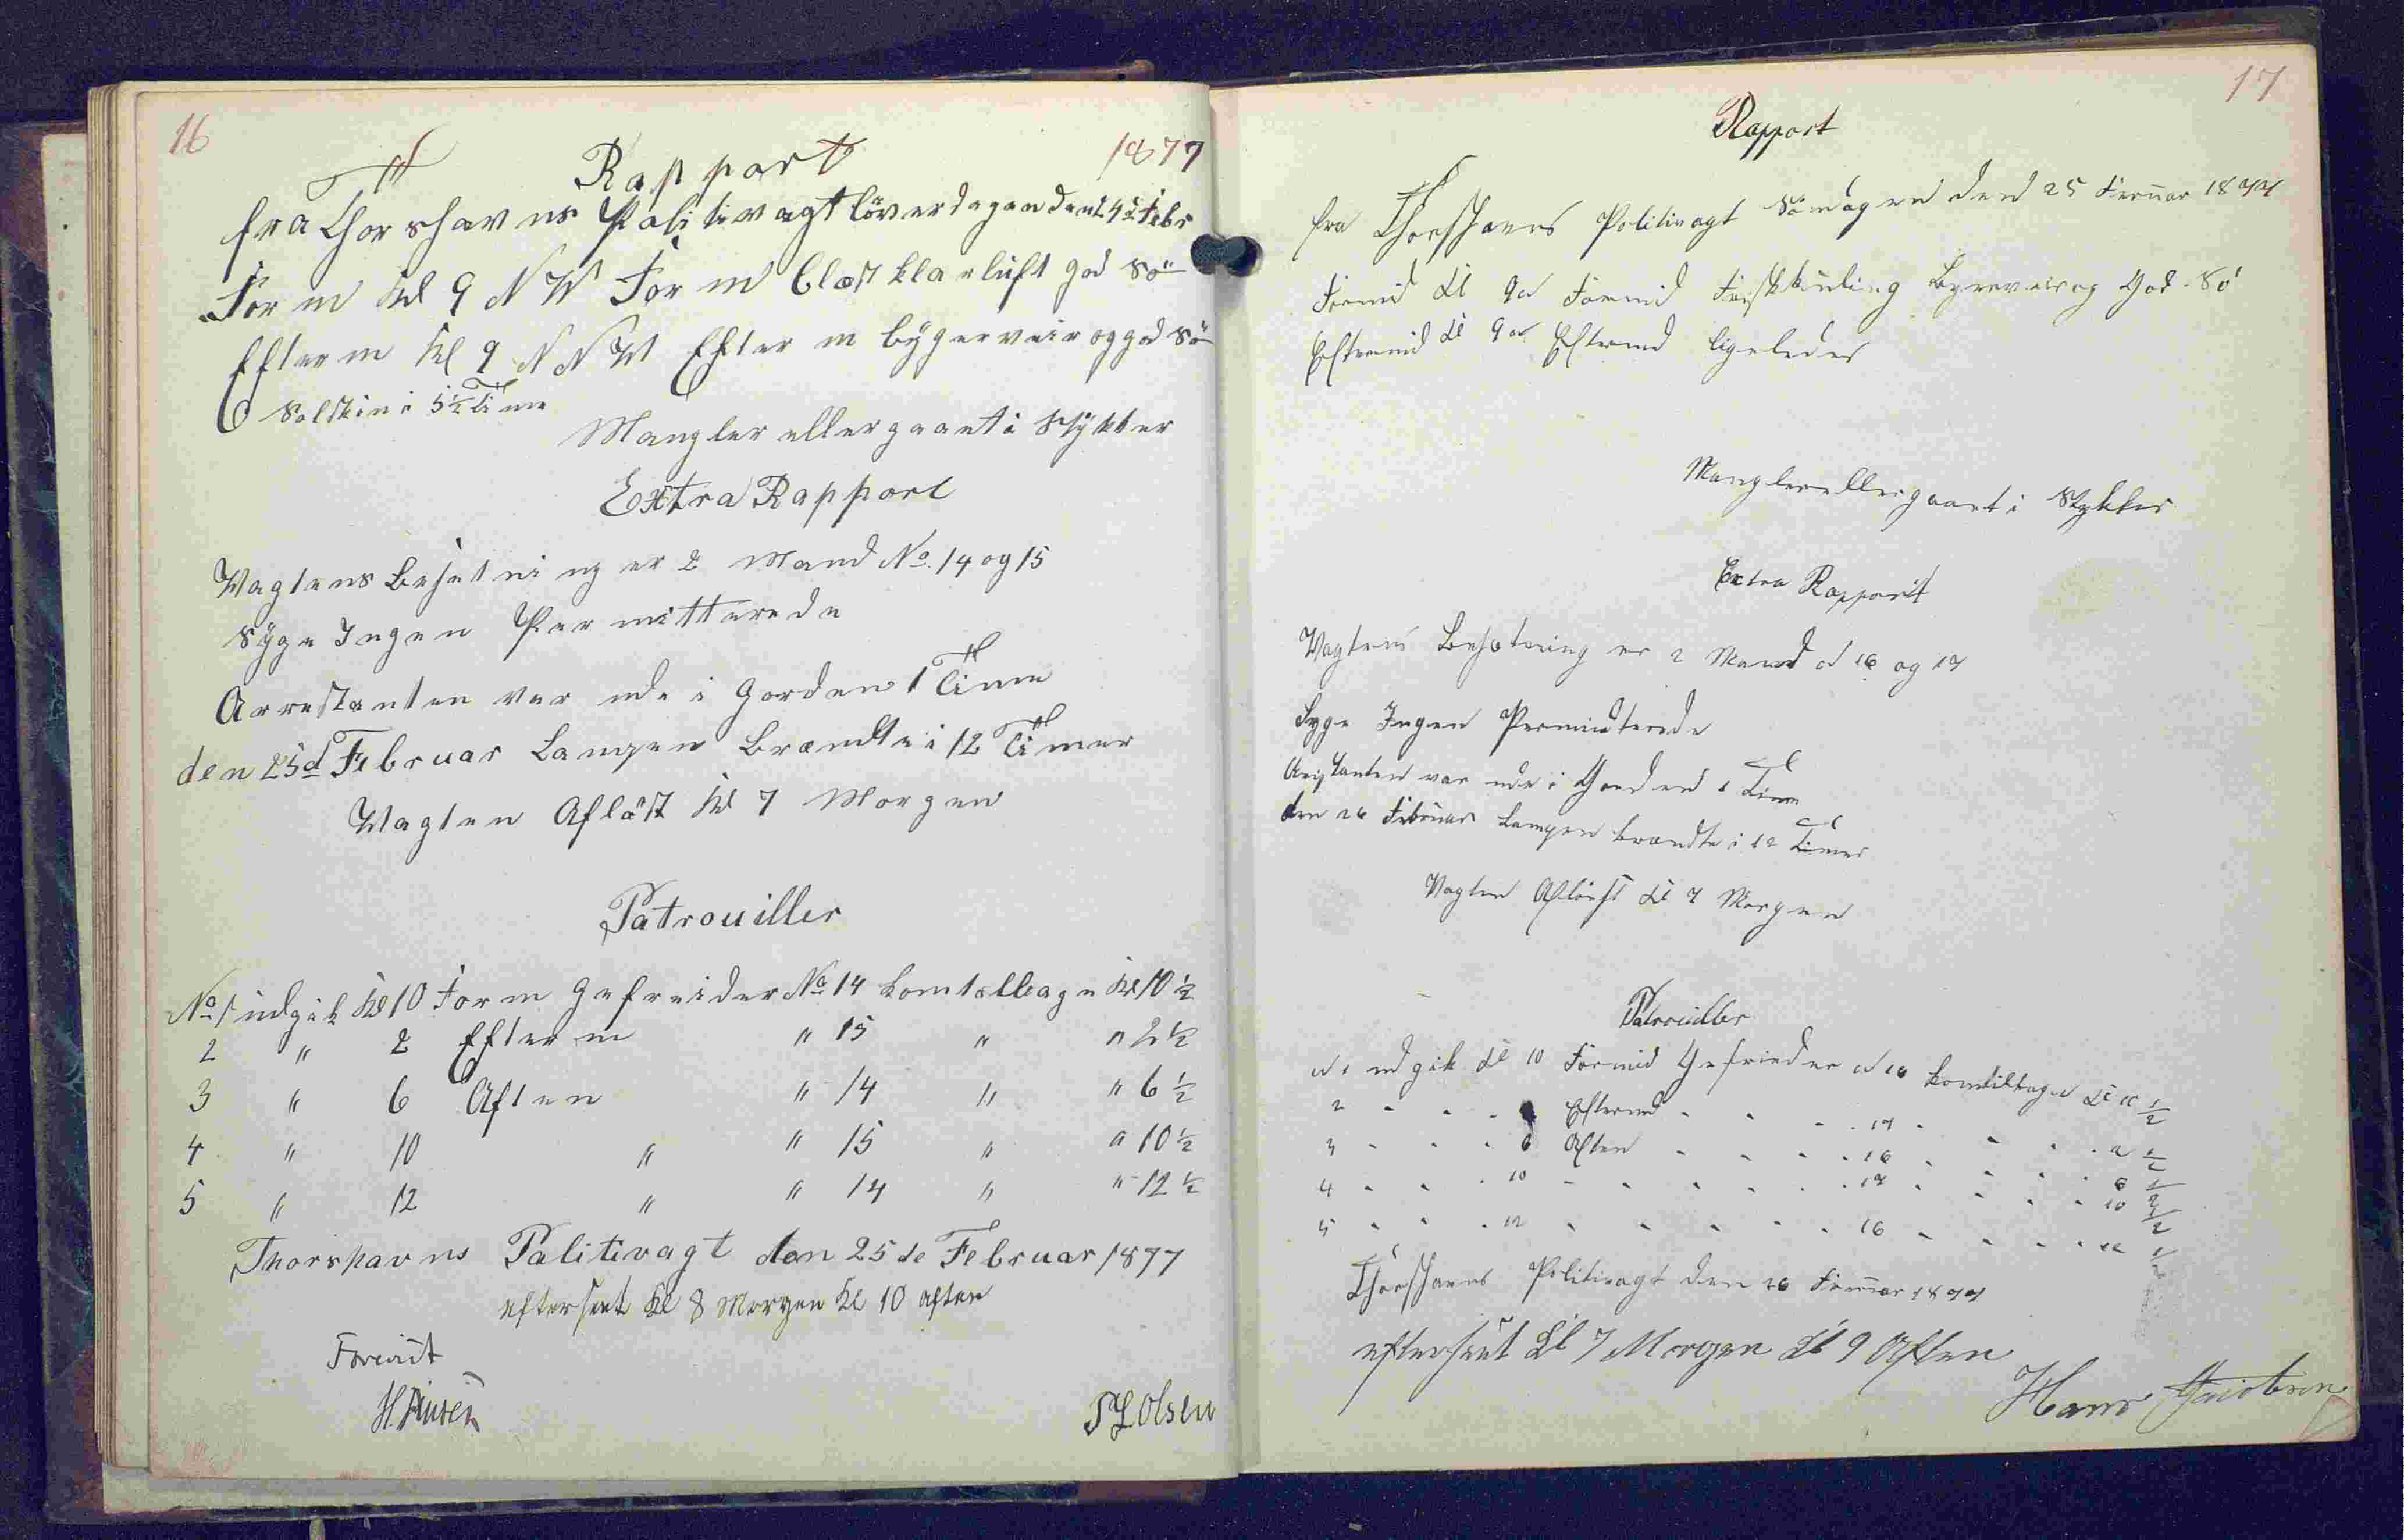 16
Rapport 1877
fra Thorshavns Politivagt löverdagen den 24de Febr
Form Kl 9 N W Form blæst klarluft god Sö
Efterm Kl 9 N N W Efterm bygerveir og god Sö
Solskin i 5½ Time
Mangler eller gaaet i Stykker
Extra Rapport
Vagtens Besetning er 2 Mand No. 14 og 15
Syge Ingen Permitterede
Arrestanten var ude i Gorden 1 Time
den 25d Februar Lampen Brændte i 12 Timer
Vagten Aflöst Kl 7 Morgen
Patrouiller
No 1 udgik Kl 10 Form Gefreider No 14 kom tilbage Kl 10 ½
2 " 2 Efterm " 15 " " 2 ½
3 " 6 Aften " 14 " " 6 ½
4 " 10 " " 15 " " 10 ½
5 " 12 " " 14 " " 12 ½
Thorshavns Politivagt den 25de Februar 1877
efterseet Kl 8 Morgen Kl 10 aften
Forevist
Olsen
17
Rapport
fra Thorshavns Politivagt Söndagen den 25 Februar 1877
Formid Kl 9 Formid Friskkuling Bygeveir og God Sö
Eftermid Kl 9 Eftermd ligeledes
Mangler eller gaaet i Stykker
Extra Rapport
Vagtens Besetning er 2 Mand N 16 og 17
Syge Ingen Permiterede
Aristanten var ude i Gaarden 1 Time
den 26 Februar Lampen brændte i 12 Timer
Vagten Aflöst Kl 7 Morgen
Patrouiller
N 1 udgik Kl 10 Formid Gefrieder N 16 kom tilbage Kl 10 ½
2 - - - Eftermd - - - 17 - - - 2 ½
3 - - - 6 Aften - - - 16 - - - 6 ½
4 - - - 10 - - - - 17 - - - 10 ½
5 - - - 12 - - - - 16 - - - 12 ½
Thorshavns Politivagt den 26 Februar 1877
efterseet Kl 7 Morgen Kl 9 Aften
Hans Jacobsen